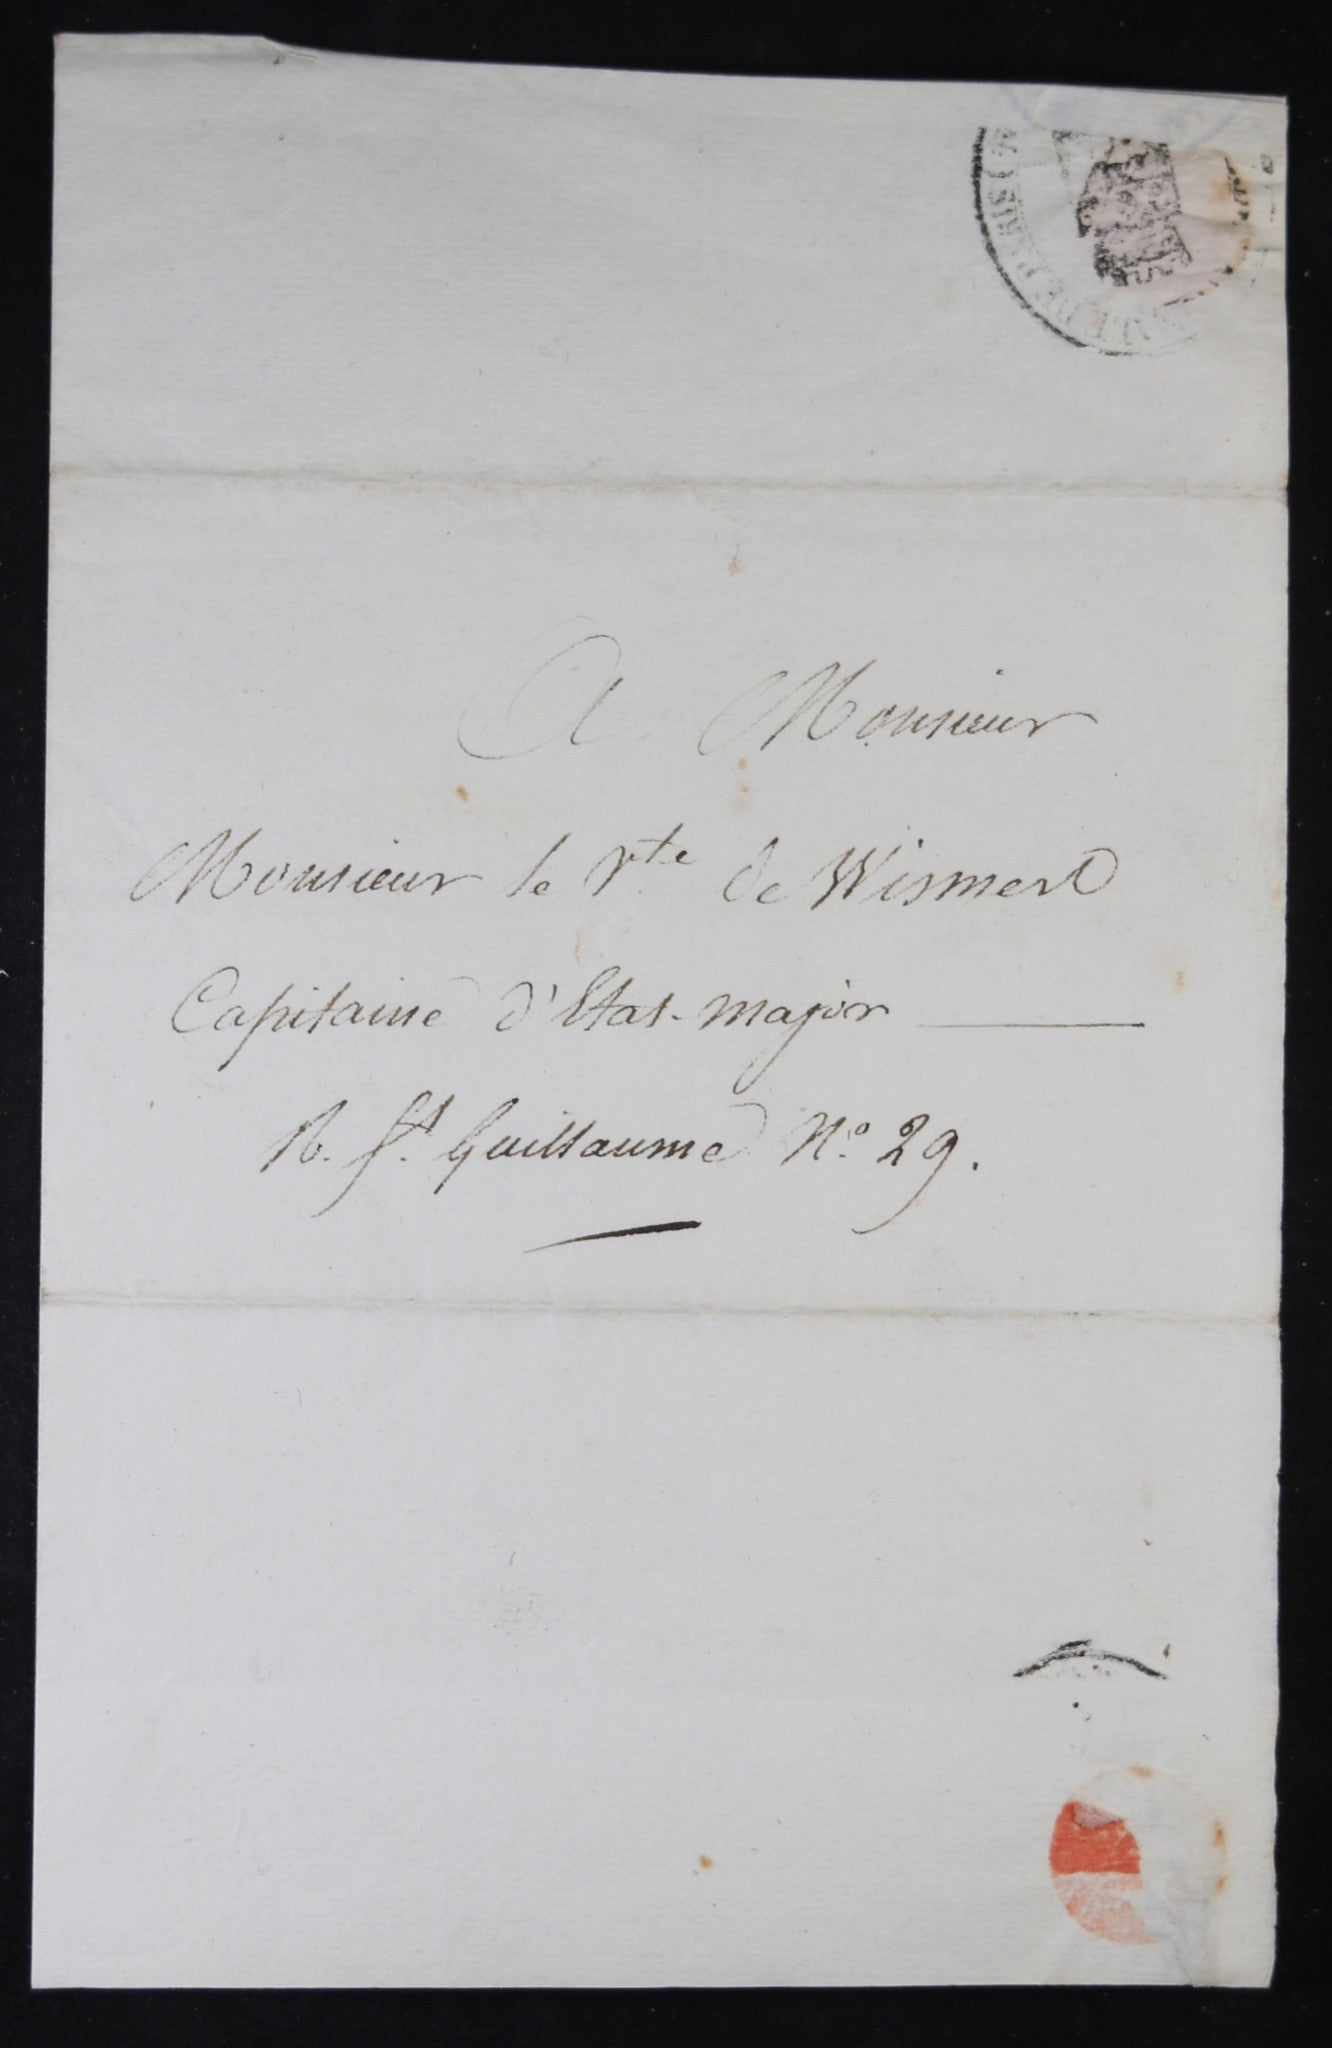 DE PARIS
A Monsieur
Monsieur le Vte de Wismes
Capitaine d'Etat-major
R. St. Guillaume No. 29.